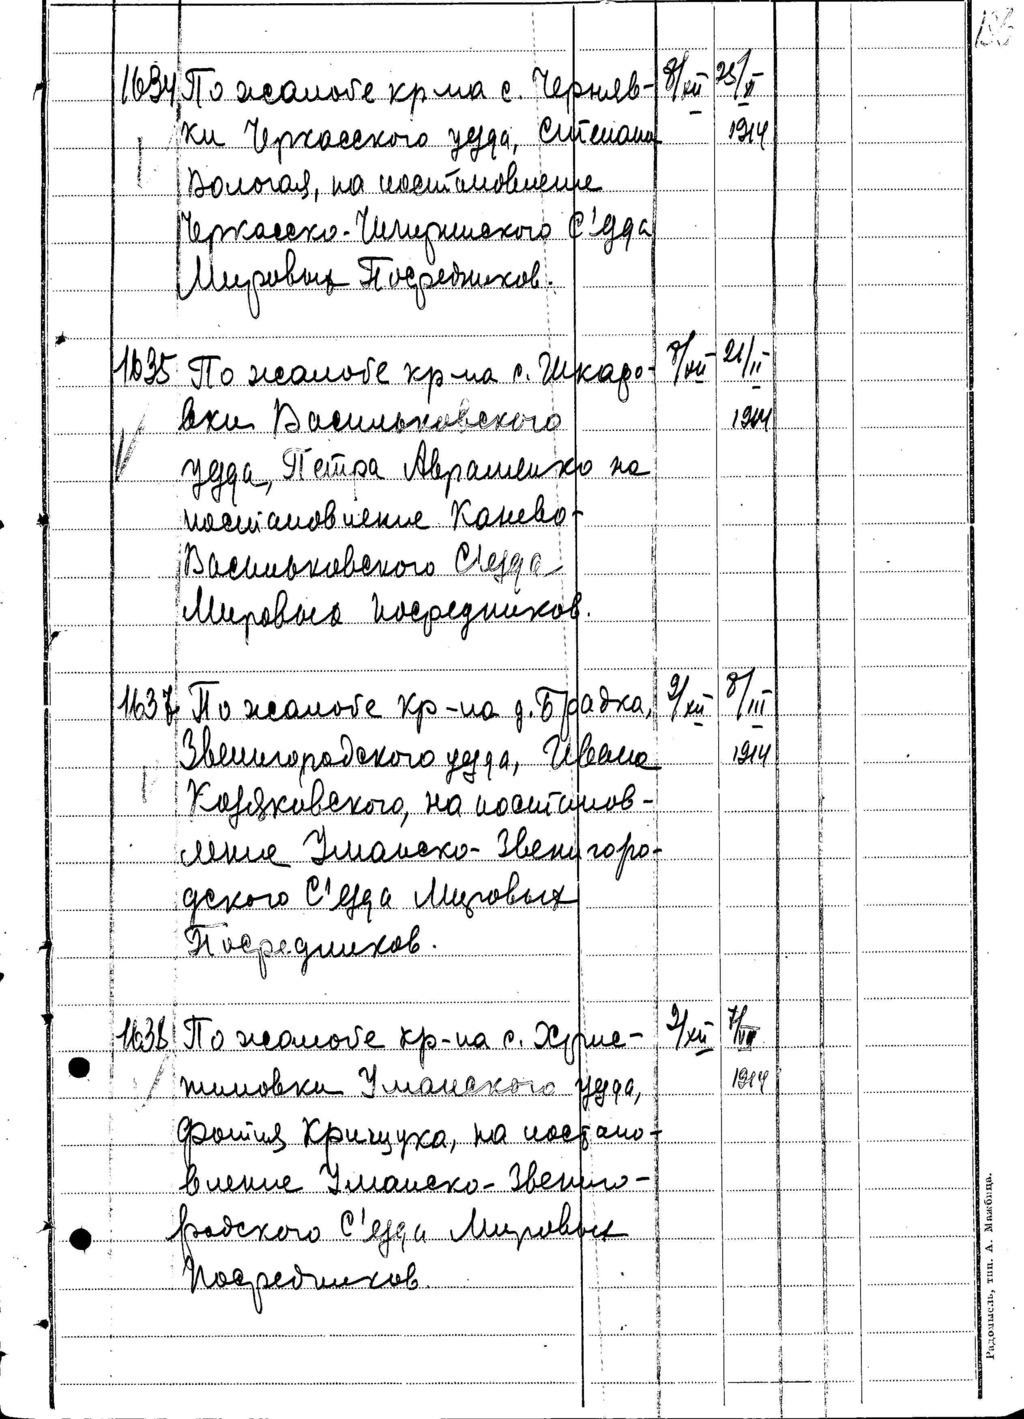 136
1634 По жалобе кр-на с. Черняв- 8/XII 25/XI
ки Черкасского уезда, Степана 1914
на постановление
Черкасско-Чигиринского С'езда
Мировых Посредников.
1635 По жалобе кр-на с. Шкаро- 8/XII 21/II
вки Васильковского 1914
уезда, Петра Авраменко на
постановление Канево-
Васильковского С'езда
Мировых Посредников.
1637 По жалобе кр-на д. Бродка, 9/XII 8/III
Звенигородского уезда, Ивана 1914
Козяковского, на постанов-
ление Уманско-Звенигоро-
дского С'езда Мировых
Посредников.
1638 По жалобе кр-на с. Христи- 9/XII
тиновки Уманского уезда, 1914
Фотия Крищука, на постано-
вление Уманско-Звениго-
родского С'езда Мировых
Посредников.
Радомысль, тип. А. Мажбица.